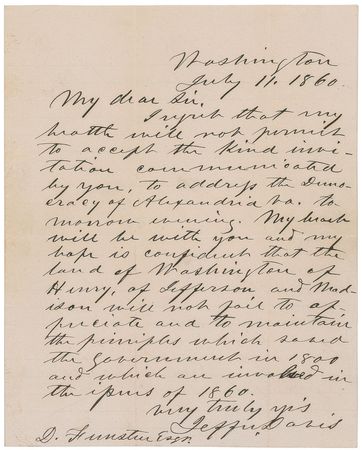 Washington
July 11. 1860
My dear Sir.
I regret that my
health will not permit
to accept the kind invi-
tation communicated
by you, to address the Demo-
cracy of Alexandria Va. to
morrow evening. My heart
will be with you and my
hope is confident that the
land of Washington of
Henry, of Jefferson and Mad-
ison will not fail to ap-
preciate and to maintain
the principles which saved
the government in 1800
and which are involved in
the issues of 1860.
Very truly yrs
Jeffn. Davis
D. Funsten Esqr.